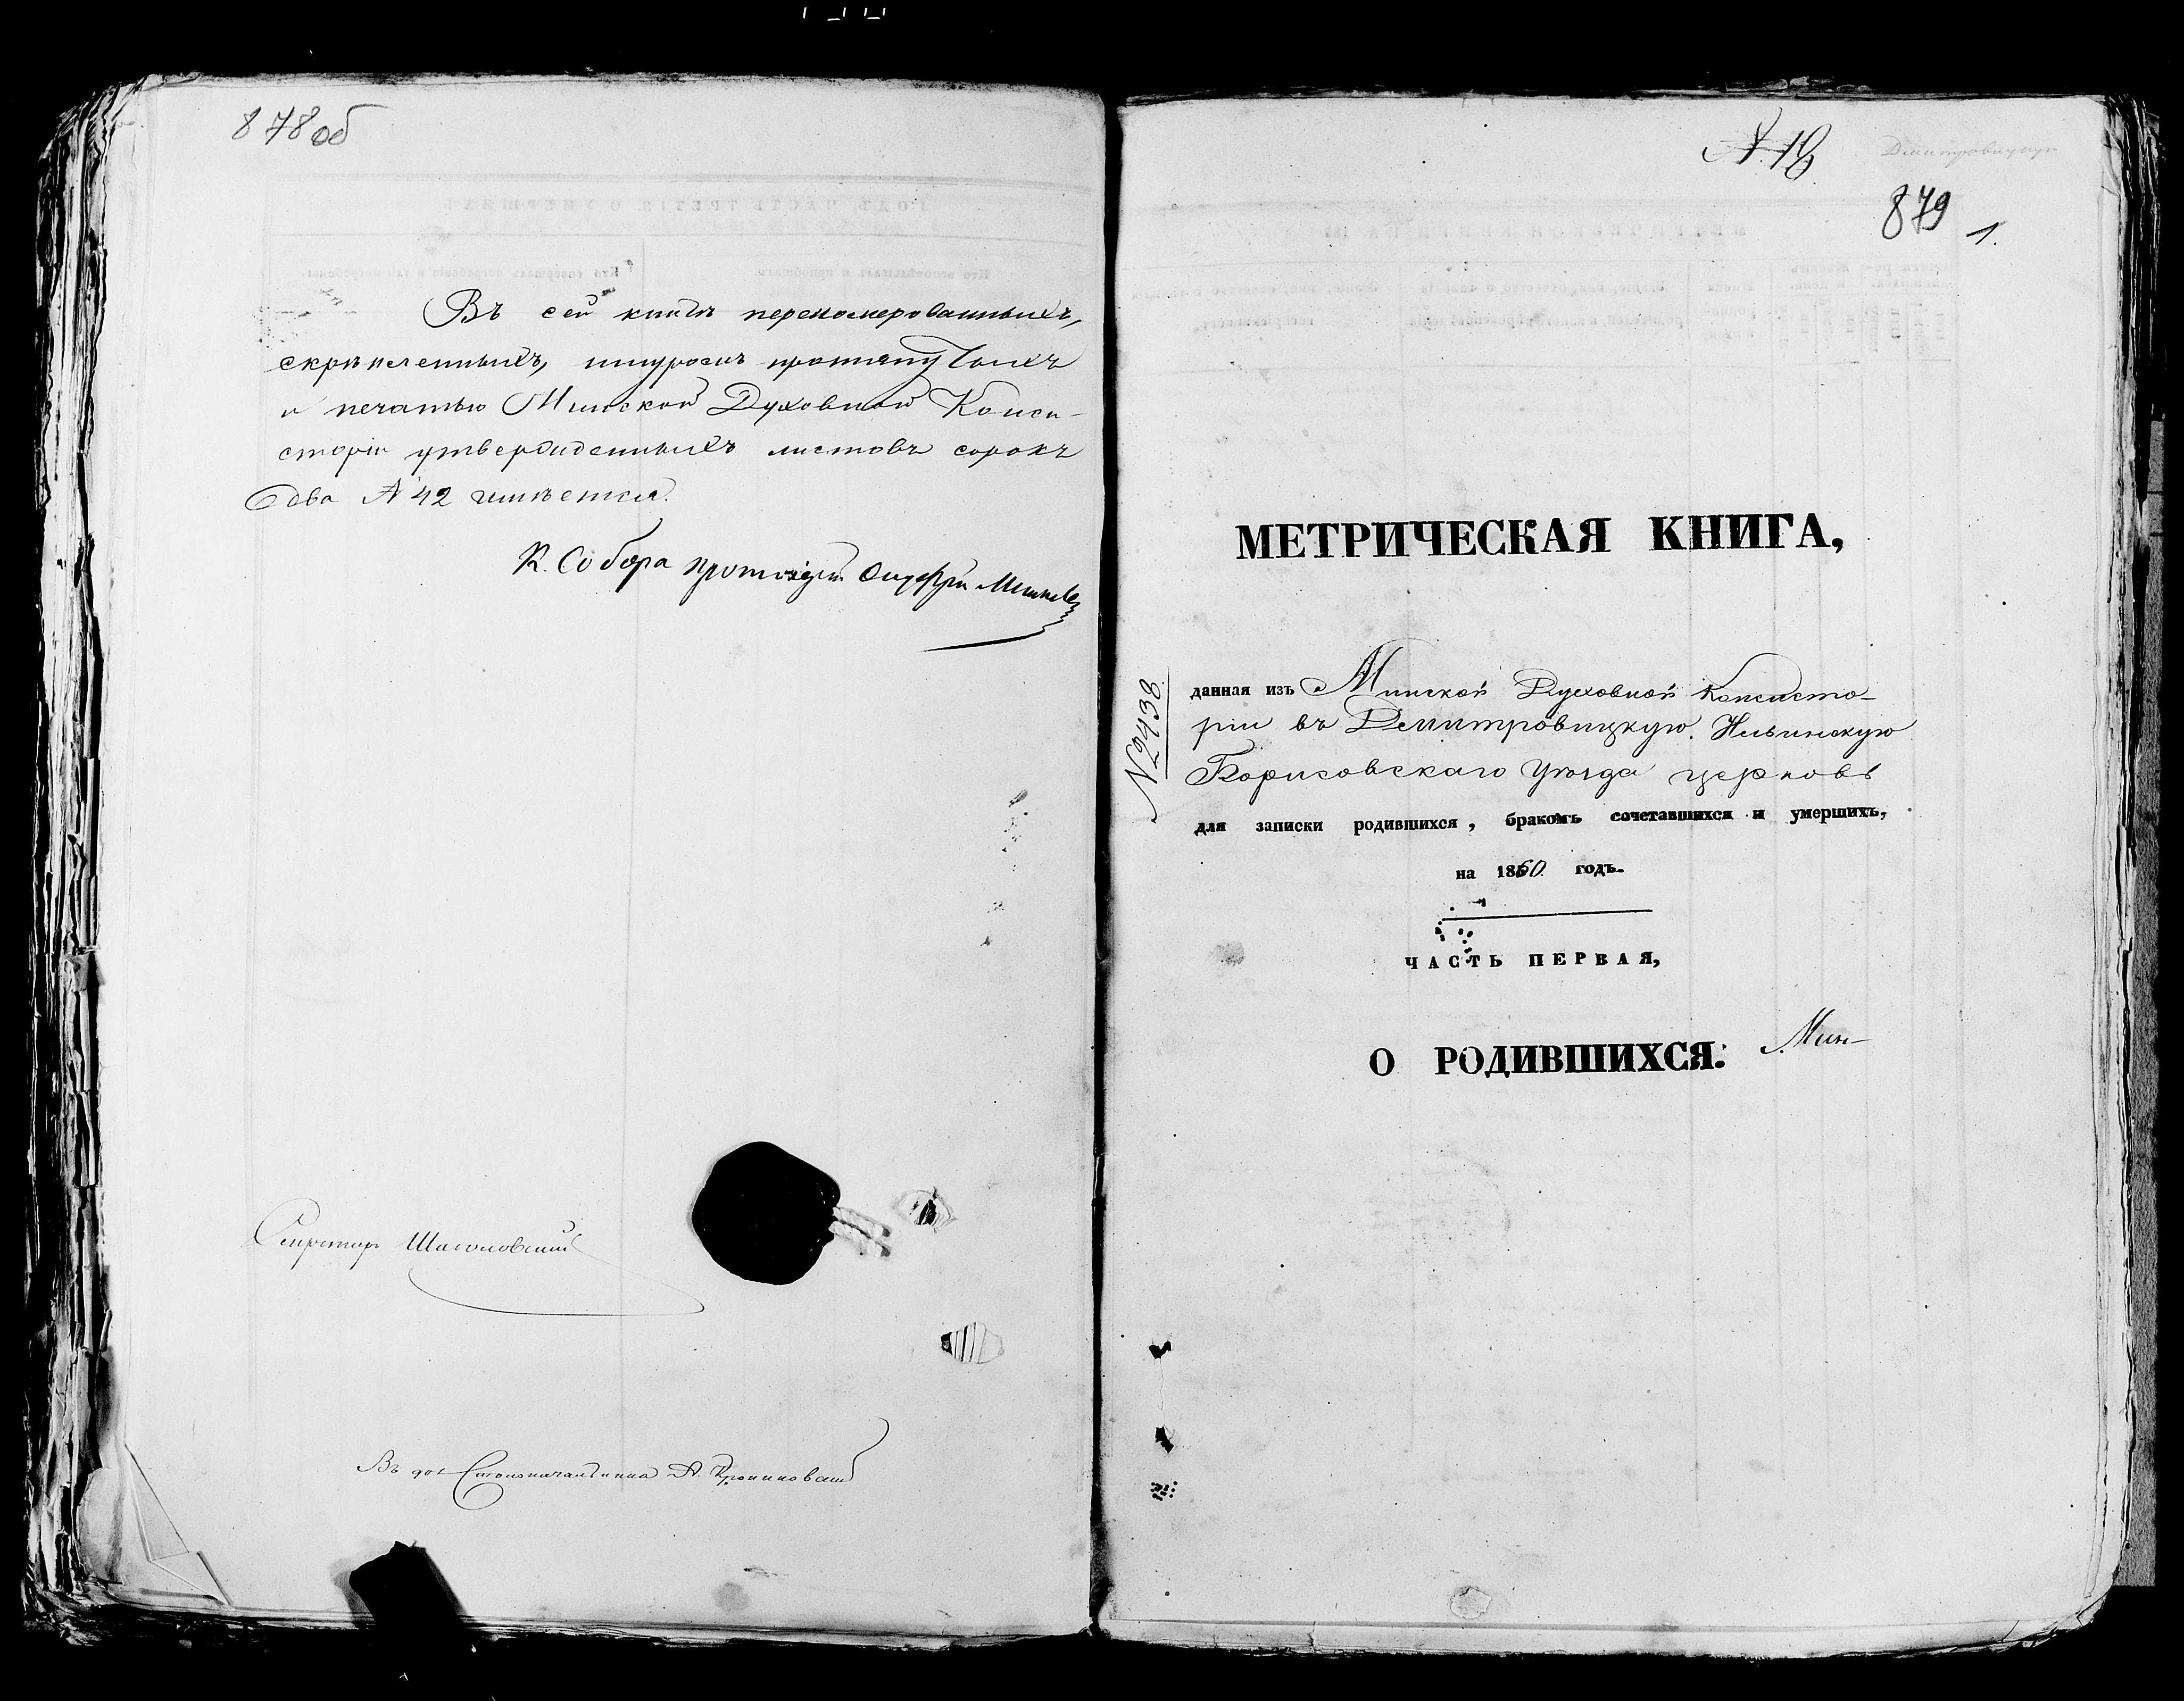 878об
Въ сей книгѣ перенумерованныхъ,
скрѣпленныхъ, шнуромъ протянутыхъ
и печатью Минской Духовной Конси-
сторіи утвержденныхъ листовъ сорокъ
два № 42 имѣется.
К. Собора протоіерей
Секретарь
Въ дол Столоначальника А.
№ 18
Дмитровицкую
879
1.
МЕТРИЧЕСКАЯ КНИГА,
№ 2438
данная изъ Минской Духовной Консисто-
ріи въ Демитровицкую Ильинскую
Борисовскаго Уѣзда церковь
для записки родившихся, бракомъ сочетавшихся и умершихъ,
на 1860 годъ.
ЧАСТЬ ПЕРВАЯ,
О РОДИВШИХСЯ: Мин-